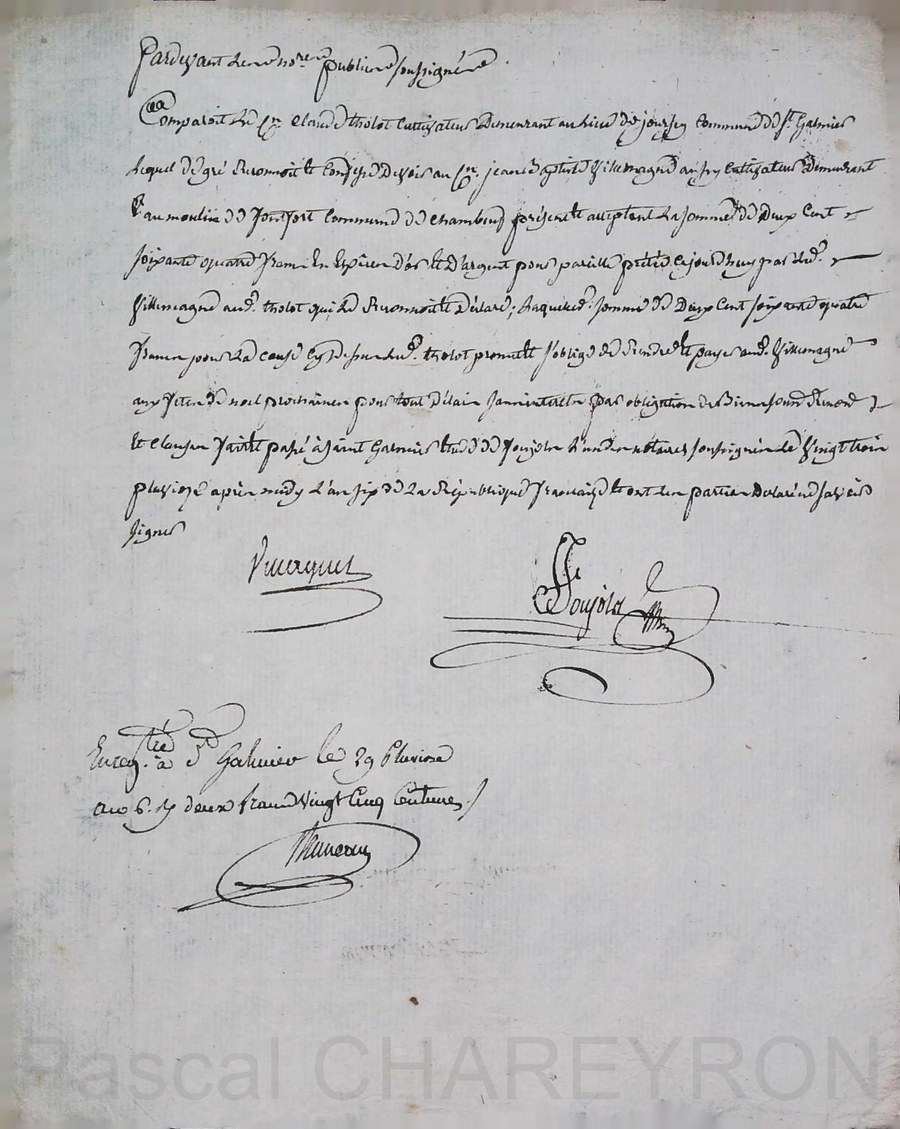 Pardevant les no.res publics soussignés.
Comparoit le C.n Claude tholot Cultivateur Demeurant au lieu de jourcey Commune de S.t Galmier
lequel de gré Reconnoit et Confesse Devoir au C.n jean Baptiste Villemagne aussy Cultivateur Demeurant
au moulin de Commune de Chambeuf présent et acceptant la somme de Deux Cent
soixante quatre francs En Espèces d'or et D'argent pour pareille prêtée Cejourd'huy par led.
Villemagne aud. tholot qui le Reconnoit et Déclare; laquelle d. somme de Deux Cent soixante quatre
francs pour la cause Cy dessus led. tholot promet et s'oblige de Rendre et payer aud. Villemagne
aux fêtes de noel prochaines pour tout Délai sans interets par obligation de Biens
et Clauses fait et passé à Saint Galmier Etude de Poujola L'un des notaires soussignés le Vingt trois
pluviose après midy L'an six de la République française et ont les parties Déclaré ne savoir
signer
Poujola
Enreg.tré à S.t Galmier le 29 Pluviose
an 6. R deux francs Vingt Cinq Centimes
Pascal CHAREYRON